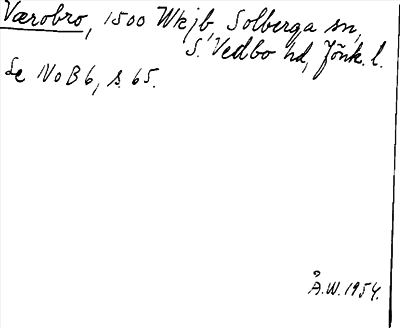 Værobro, 1500 Wkjb, Solberga sn,
S. Vedbo hd, Jönk. l.
Se NoB 6, s. 65.
Å.W. 1954.